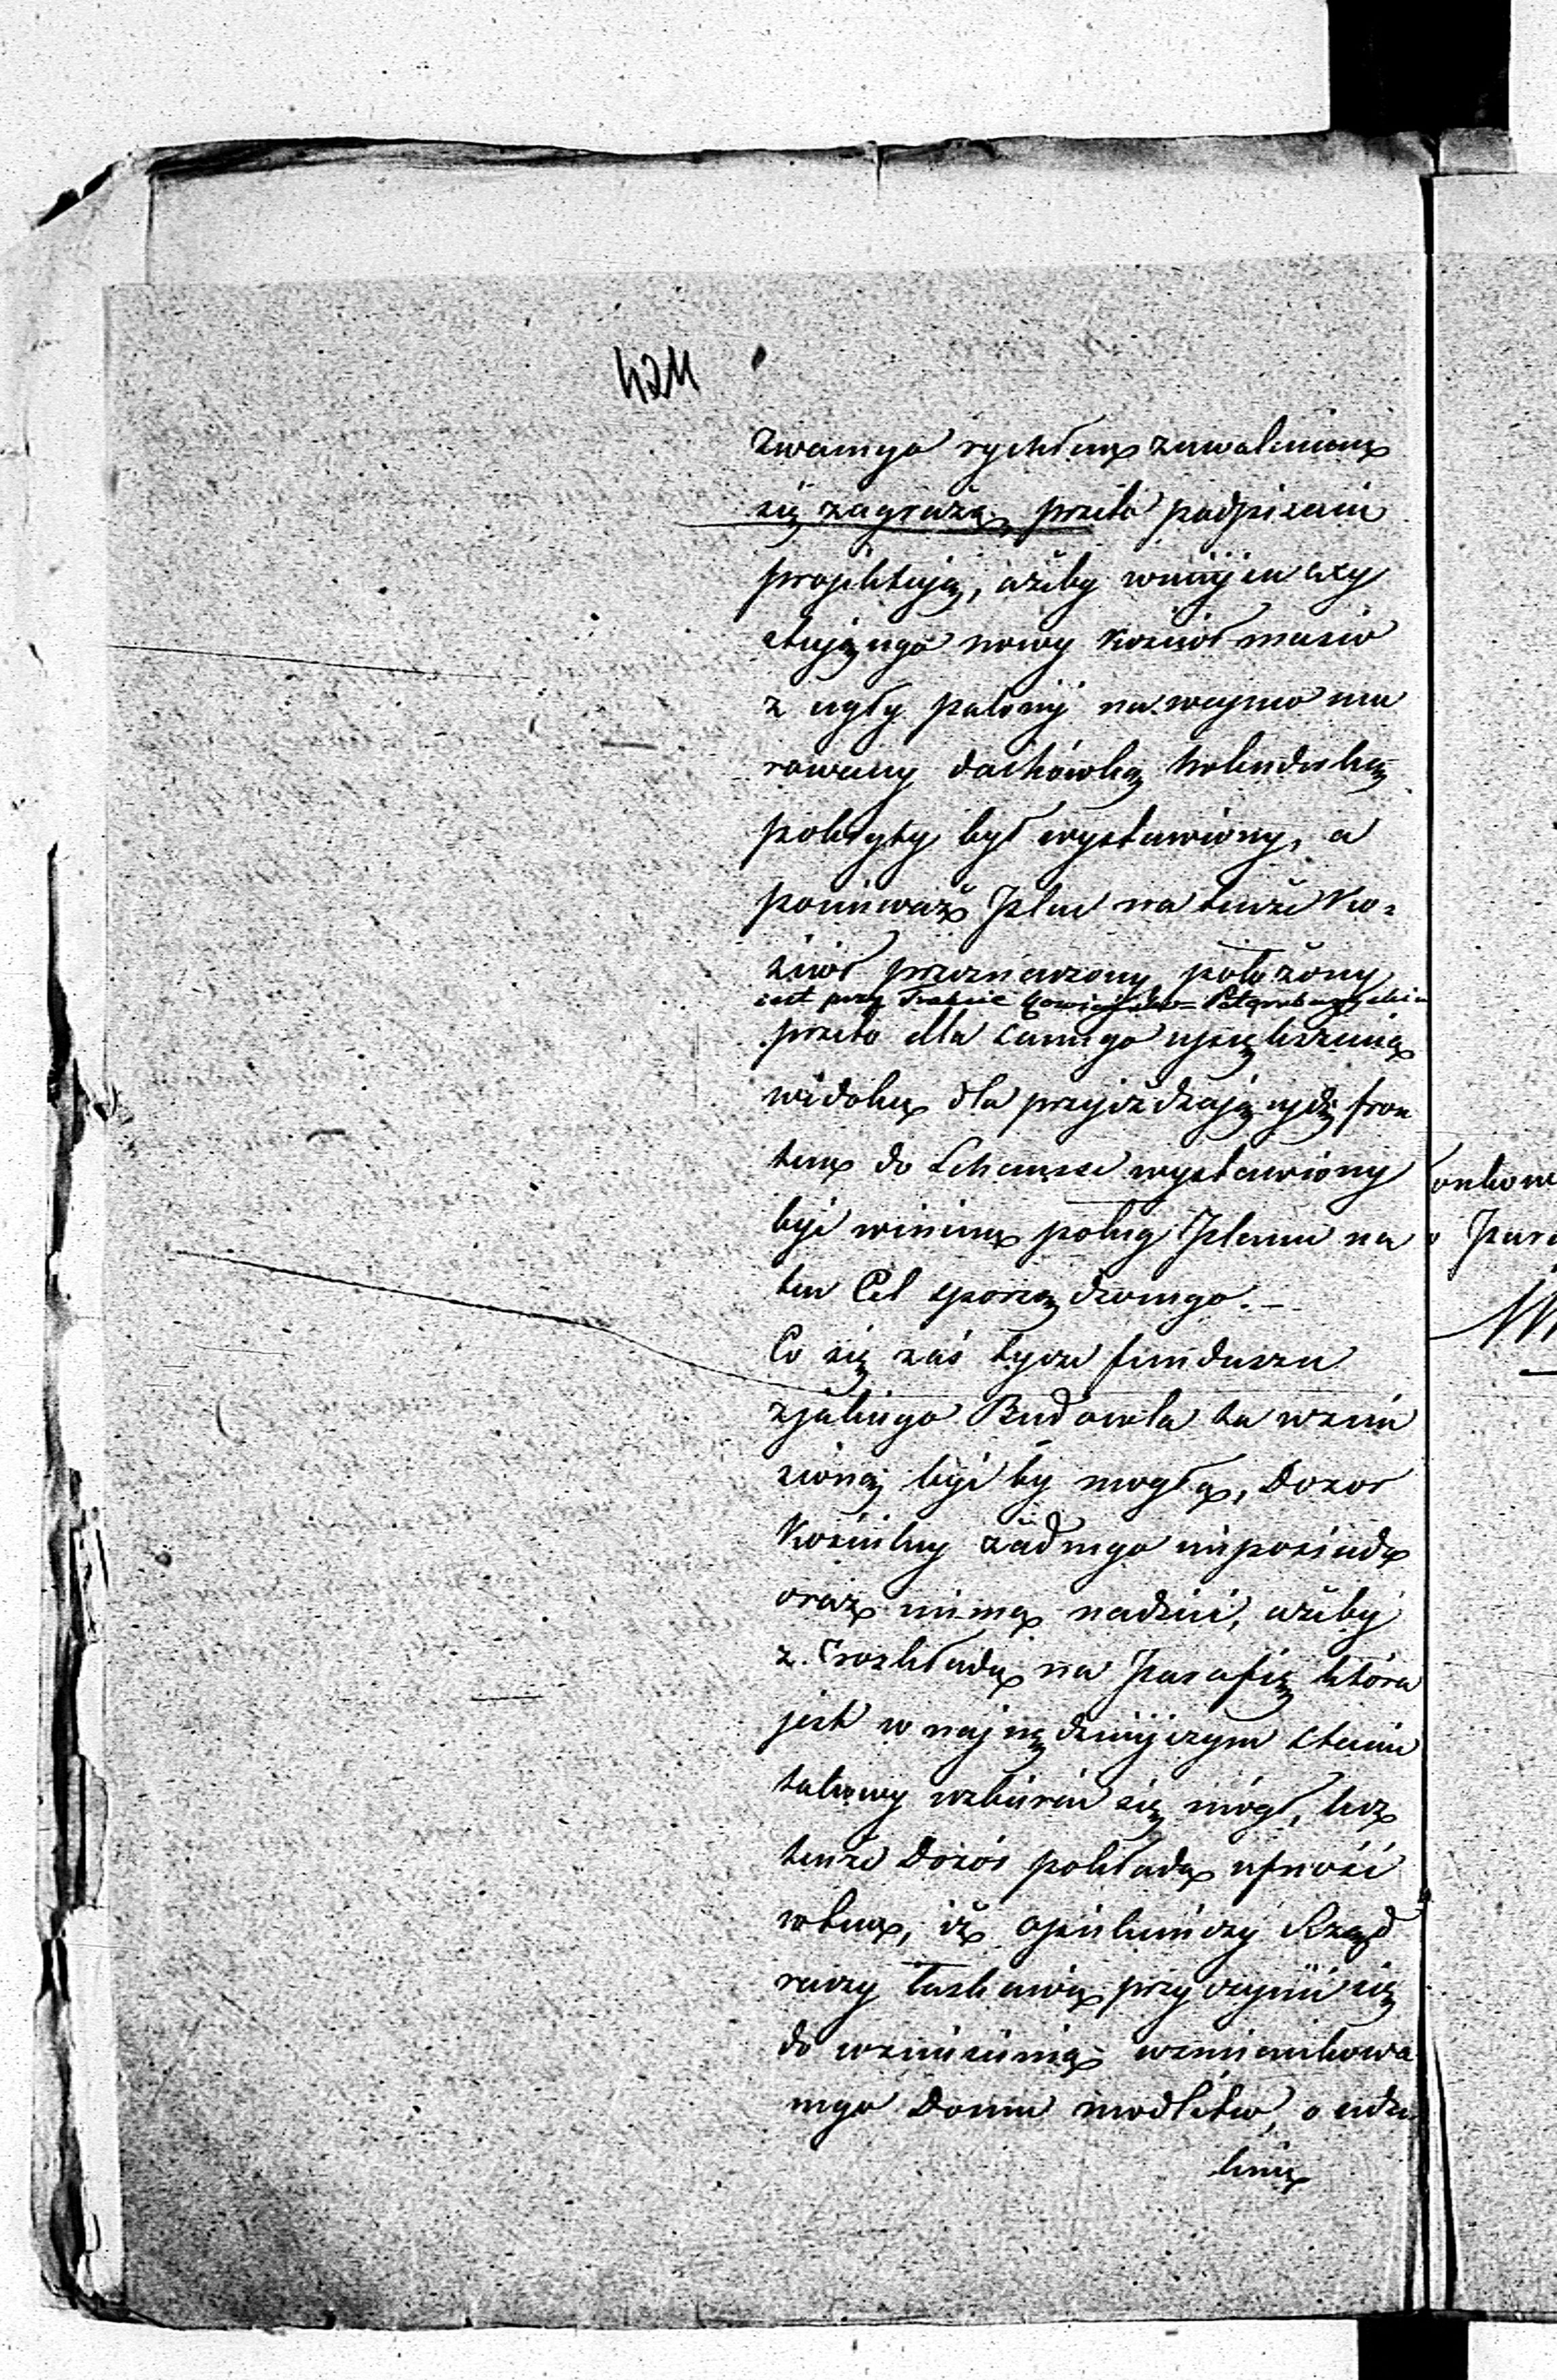 421
zwanego rychłem zawaleniem
się zagraża, przeto podpisani
projektują, ażeby w miejsce exy
stującego nowy Kościoł masiw
z cegły paloney na wapno mu
rowany dachówką holenderską
pokryty był wystawiony, a
ponieważ Plac na tenże Ko=
ścioł przeznaczony położony
jest przy Trakcie Petersburgskim
przeto dla samego upiększenia
widoku dla przejeżdzających fron
tem do Schaussee wystawiony
być winien podług Planu na
ten Cel sporządzonego. –
Co się zaś tycze funduszu
z jakiego Budowla ta wznie
sioną być by mogła, Dozor
Kościelny żadnego nieposiada
oraz niema nadziei, ażeby
z rozkładu na Parafię która
jest w najnędzniejszym stanie
takowy uzbierać się mógł, lecz
tenże Dozór pokłada ufność
w tem, iż opiekuńczy Rząd
raczy łaskawie przyczynić się
do wzniesienia wzmiankowa
nego Domu modlitw, o udzie
lenie